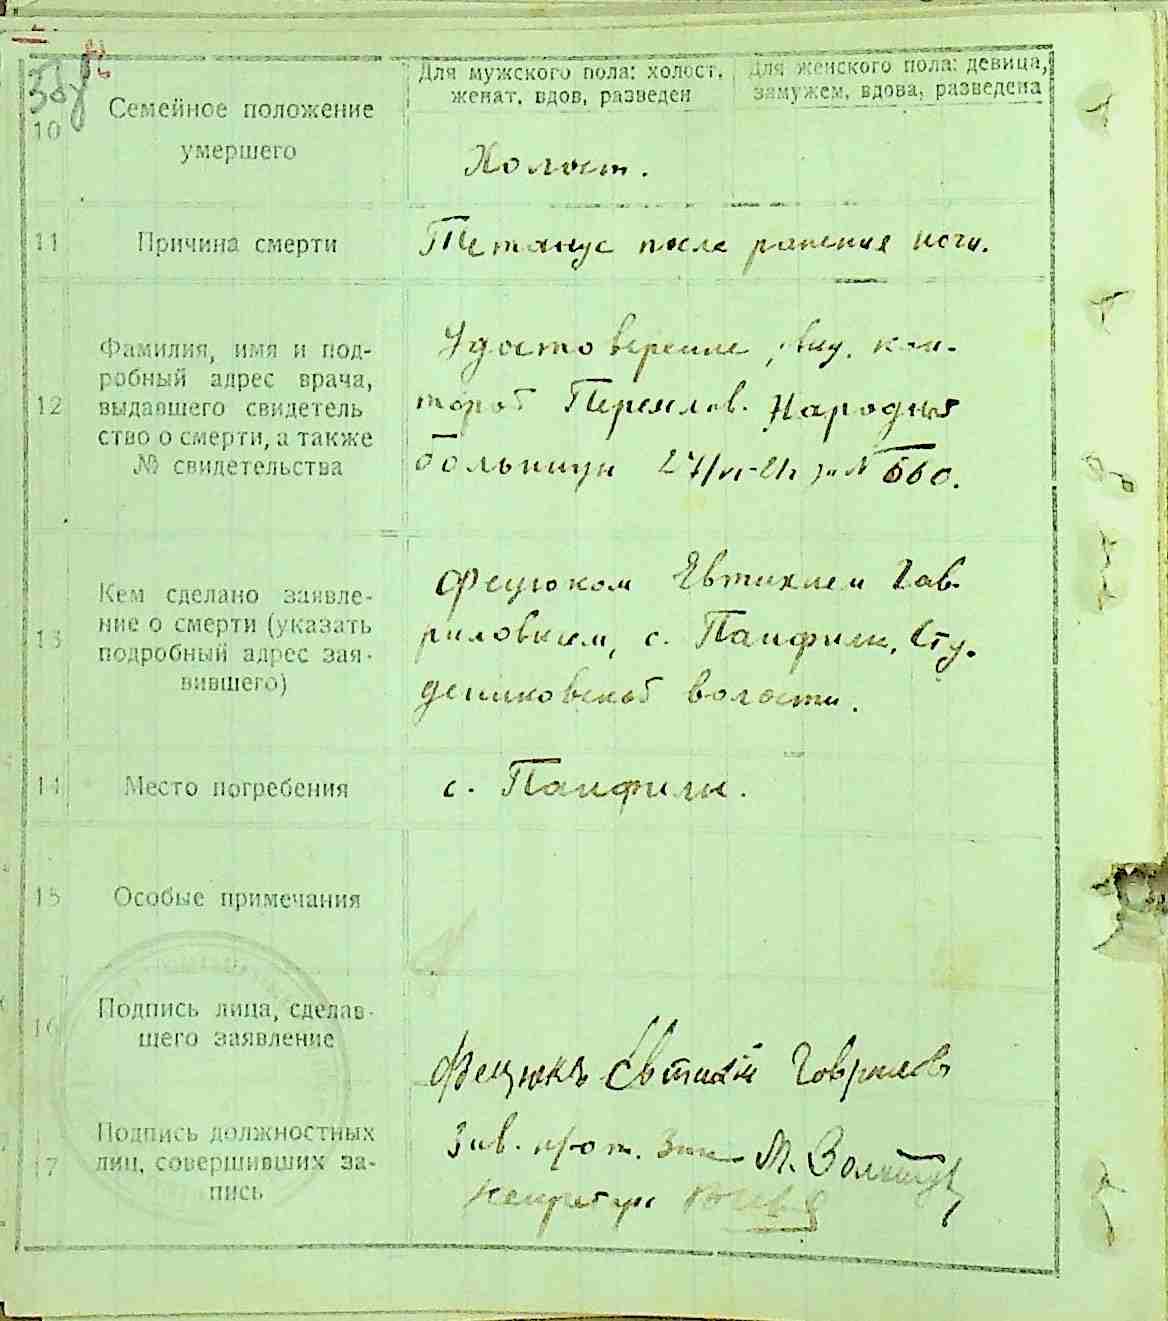 10
Семейное положение
умершего
Для мужского пола: холост,
женат, вдов, разведен
Для женского пола: девица,
замужем, вдова, разведена
Холост.
11
Причина смерти
Тетанус после ранения ноги.
12
Фамилия, имя и под-
робный адрес врача,
выдавшего свидетель
ство о смерти, а также
№ свидетельства
Удостоверение, кон-
торой Переяслав. Народной
больницы 27/VI-21 за № 560.
13
Кем сделано заявле-
ние о смерти (указать
подробный адрес зая-
вившего)
Фецюком Евтихием Гав-
риловичем, с. Панфилы, Сту-
дениковской волости.
14
Место погребения
с. Панфилы.
15
Особые примечания
16
Подпись лица, сделав-
шего заявление
Фецюкъ Евтихій Говрилов
17
Подпись должностных
лиц, совершивших за-
пись
Зав.